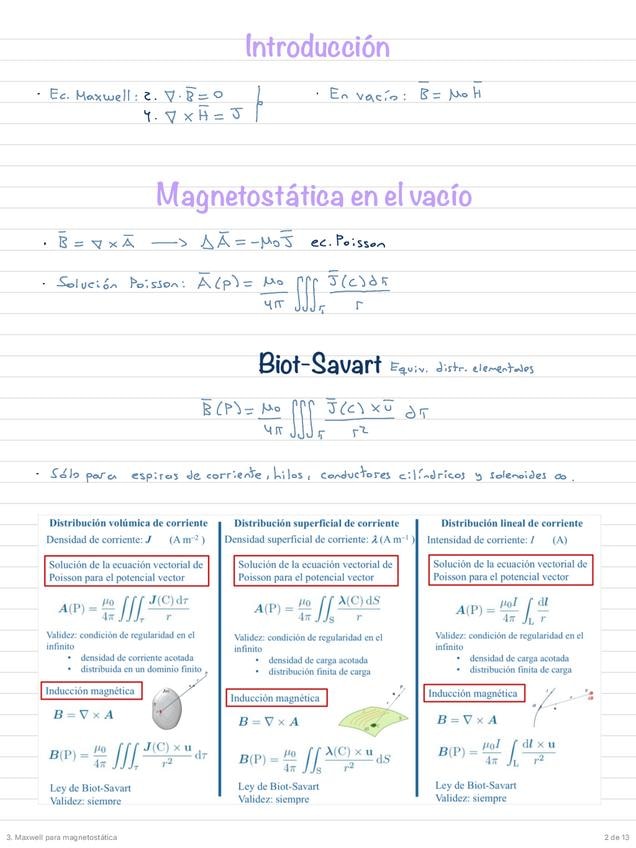 Introducción
· Ec. Maxwell: 2. ∇·B̄ = 0
4. ∇ × H̄ = J̄
· En vacío: B̄ = μ₀ H̄
Magnetostática en el vacío
· B̄ = ∇ × Ā ⟶ ΔĀ = -μ₀J̄ ec. Poisson
· Solución Poisson: Ā(P) = μ₀/4π ∭τ J̄(C)dτ/r
Biot-Savart Equiv. distr. elementales
B̄(P) = μ₀/4π ∭τ J̄(C) × ū/r² dτ
· Sólo para espiras de corriente, hilos, conductores cilíndricos y solenoides ∞.
Distribución volúmica de corriente
Densidad de corriente: J (A m⁻²)
Solución de la ecuación vectorial de
Poisson para el potencial vector
A(P) = μ₀/4π ∭τ J(C) dτ/r
Validez: condición de regularidad en el
infinito
• densidad de corriente acotada
• distribuida en un dominio finito
Inducción magnética
B = ∇ × A
B(P) = μ₀/4π ∭τ J(C) × u/r² dτ
Ley de Biot-Savart
Validez: siempre
Distribución superficial de corriente
Densidad superficial de corriente: λ (A m⁻¹)
Solución de la ecuación vectorial de
Poisson para el potencial vector
A(P) = μ₀/4π ∬S λ(C) dS/r
Validez: condición de regularidad en el
infinito
• densidad de carga acotada
• distribución finita de carga
Inducción magnética
B = ∇ × A
B(P) = μ₀/4π ∬S λ(C) × u/r² dS
Ley de Biot-Savart
Validez: siempre
Distribución lineal de corriente
Intensidad de corriente: I (A)
Solución de la ecuación vectorial de
Poisson para el potencial vector
A(P) = μ₀I/4π ∫L dl/r
Validez: condición de regularidad en el
infinito
• densidad de carga acotada
• distribución finita de carga
Inducción magnética
B = ∇ × A
B(P) = μ₀I/4π ∫L dl × u/r²
Ley de Biot-Savart
Validez: siempre
3. Maxwell para magnetostática
2 de 13